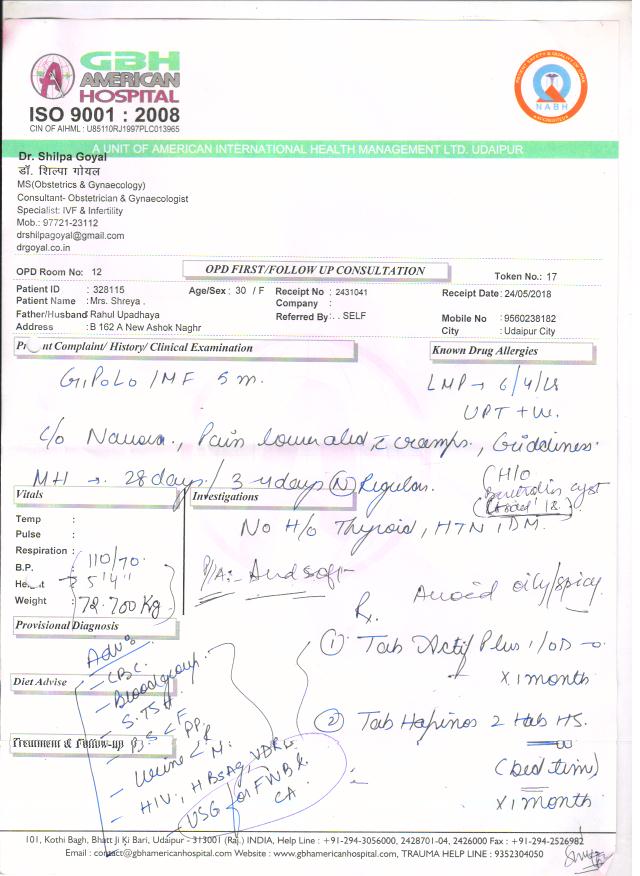 GBH
AMERICAN
HOSPITAL
ISO 9001 : 2008
CIN OF AIHML : U85110RJ1997PLC013965
NABH
A UNIT OF AMERICAN INTERNATIONAL HEALTH MANAGEMENT LTD. UDAIPUR
Dr. Shilpa Goyal
डॉ. शिल्पा गोयल
MS(Obstetrics & Gynaecology)
Consultant- Obstetrician & Gynaecologist
Specialist: IVF & Infertility
Mob.: 97721-23112
drshilpagoyal@gmail.com
drgoyal.co.in
OPD Room No: 12
OPD FIRST/FOLLOW UP CONSULTATION
Token No.: 17
Patient ID : 328115 Age/Sex : 30 / F Receipt No : 2431041 Receipt Date : 24/05/2018
Patient Name : Mrs. Shreya . Company :
Father/Husband Rahul Upadhaya Referred By : . . SELF Mobile No : 9560238182
Address : B 162 A New Ashok Naghr City : Udaipur City
Complaint/ History/ Clinical Examination
Known Drug Allergies
G1P0L0 / MF 5 m.
LMP → 6/4/18
UPT +ve.
C/o Nausea, Pain lower abd c cramps, Giddiness.
MH → 28 days / 3-4 days (N) Regular.
H/O
cyst
Vitals
Investigations
No H/o Thyroid, HTN, DM.
Temp :
Pulse :
Respiration :
B.P. : 110/70
5'4"
Weight : 72.700 Kg
P/A:- Abd soft
Avoid oily/spicy
Provisional Diagnosis
Rx.
Adv
- CBC.
- Blood group.
- S.TSH
① Tab Actif Plus 1/OD
x 1 month
Diet Advise
- S < F
PP.
- Urine < R
M.
② Tab Hapinos 2 tab HS.
(bed time)
x 1 month
Treatment & Follow-up
- HIV, HBsAg, VDRL
- USG for FWB &
CA
101, Kothi Bagh, Bhatt Ji Ki Bari, Udaipur - 313001 (Raj.) INDIA, Help Line : +91-294-3056000, 2428701-04, 2426000 Fax : +91-294-2526982
Email : contact@gbhamericanhospital.com Website : www.gbhamericanhospital.com, TRAUMA HELP LINE : 9352304050